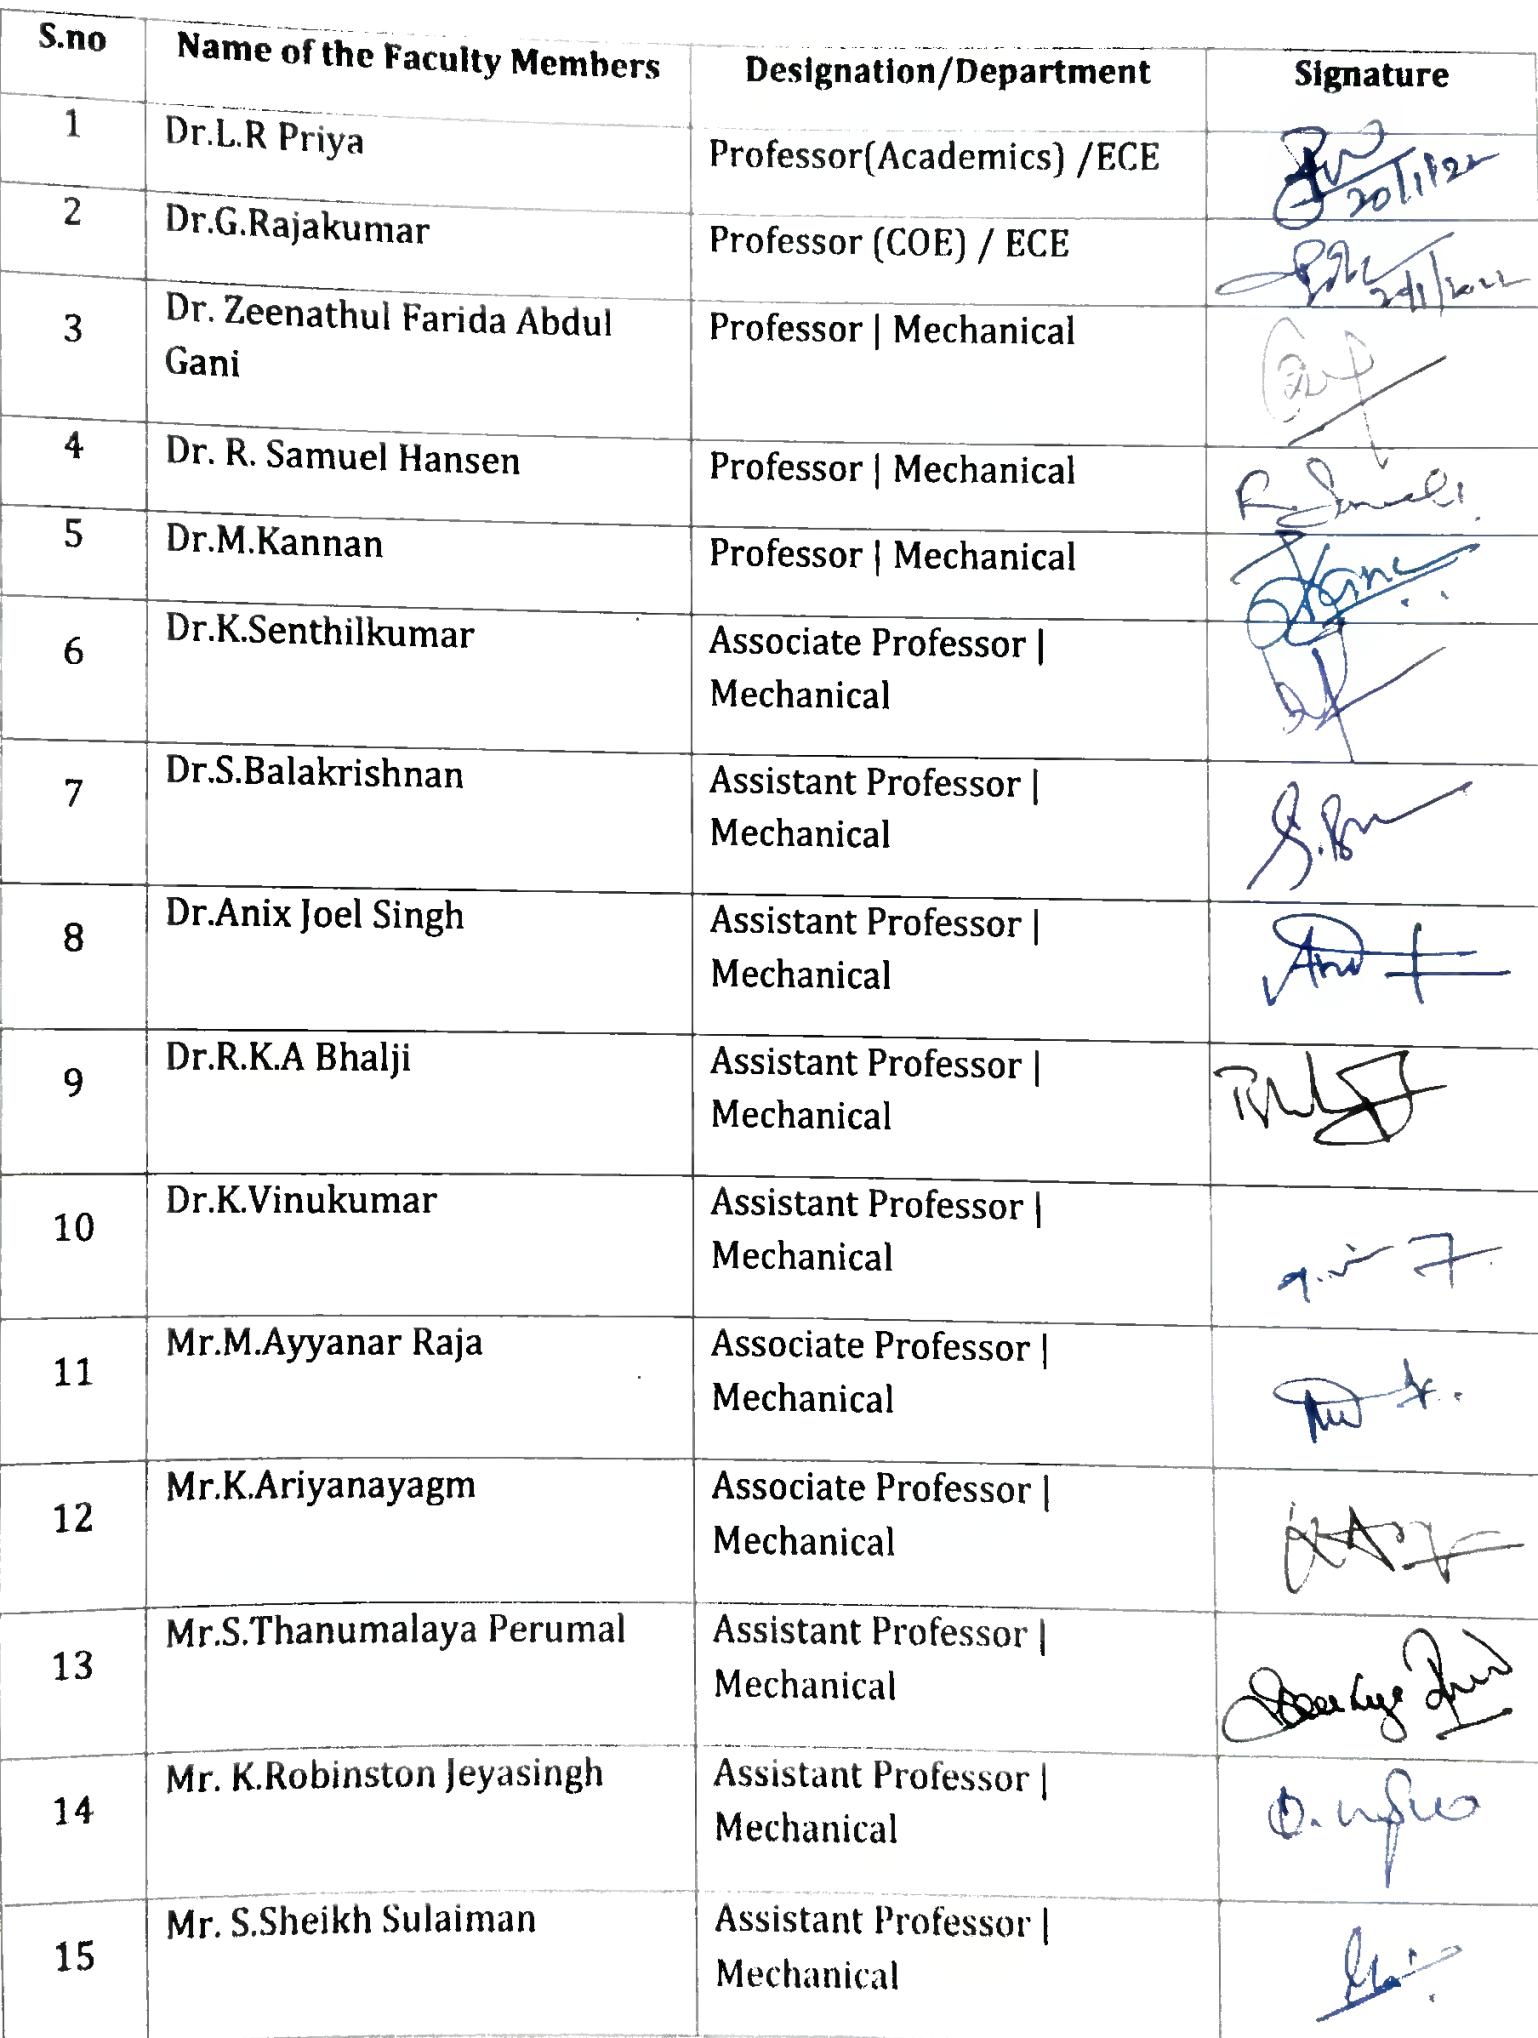 S.no Name of the Faculty Members Designation/Department Signature
1 Dr.L.R Priya Professor(Academics) /ECE
20/1/22
2 Dr.G.Rajakumar Professor (COE) / ECE
3 Dr. Zeenathul Farida Abdul Professor | Mechanical
Gani
4 Dr. R. Samuel Hansen Professor | Mechanical
5 Dr.M.Kannan Professor | Mechanical
6 Dr.K.Senthilkumar Associate Professor |
Mechanical
7 Dr.S.Balakrishnan Assistant Professor |
Mechanical
8 Dr.Anix Joel Singh Assistant Professor |
Mechanical
9 Dr.R.K.A Bhalji Assistant Professor |
Mechanical
10 Dr.K.Vinukumar Assistant Professor |
Mechanical
11 Mr.M.Ayyanar Raja Associate Professor |
Mechanical
12 Mr.K.Ariyanayagm Associate Professor |
Mechanical
13 Mr.S.Thanumalaya Perumal Assistant Professor |
Mechanical
14 Mr. K.Robinston Jeyasingh Assistant Professor |
Mechanical
15 Mr. S.Sheikh Sulaiman Assistant Professor |
Mechanical